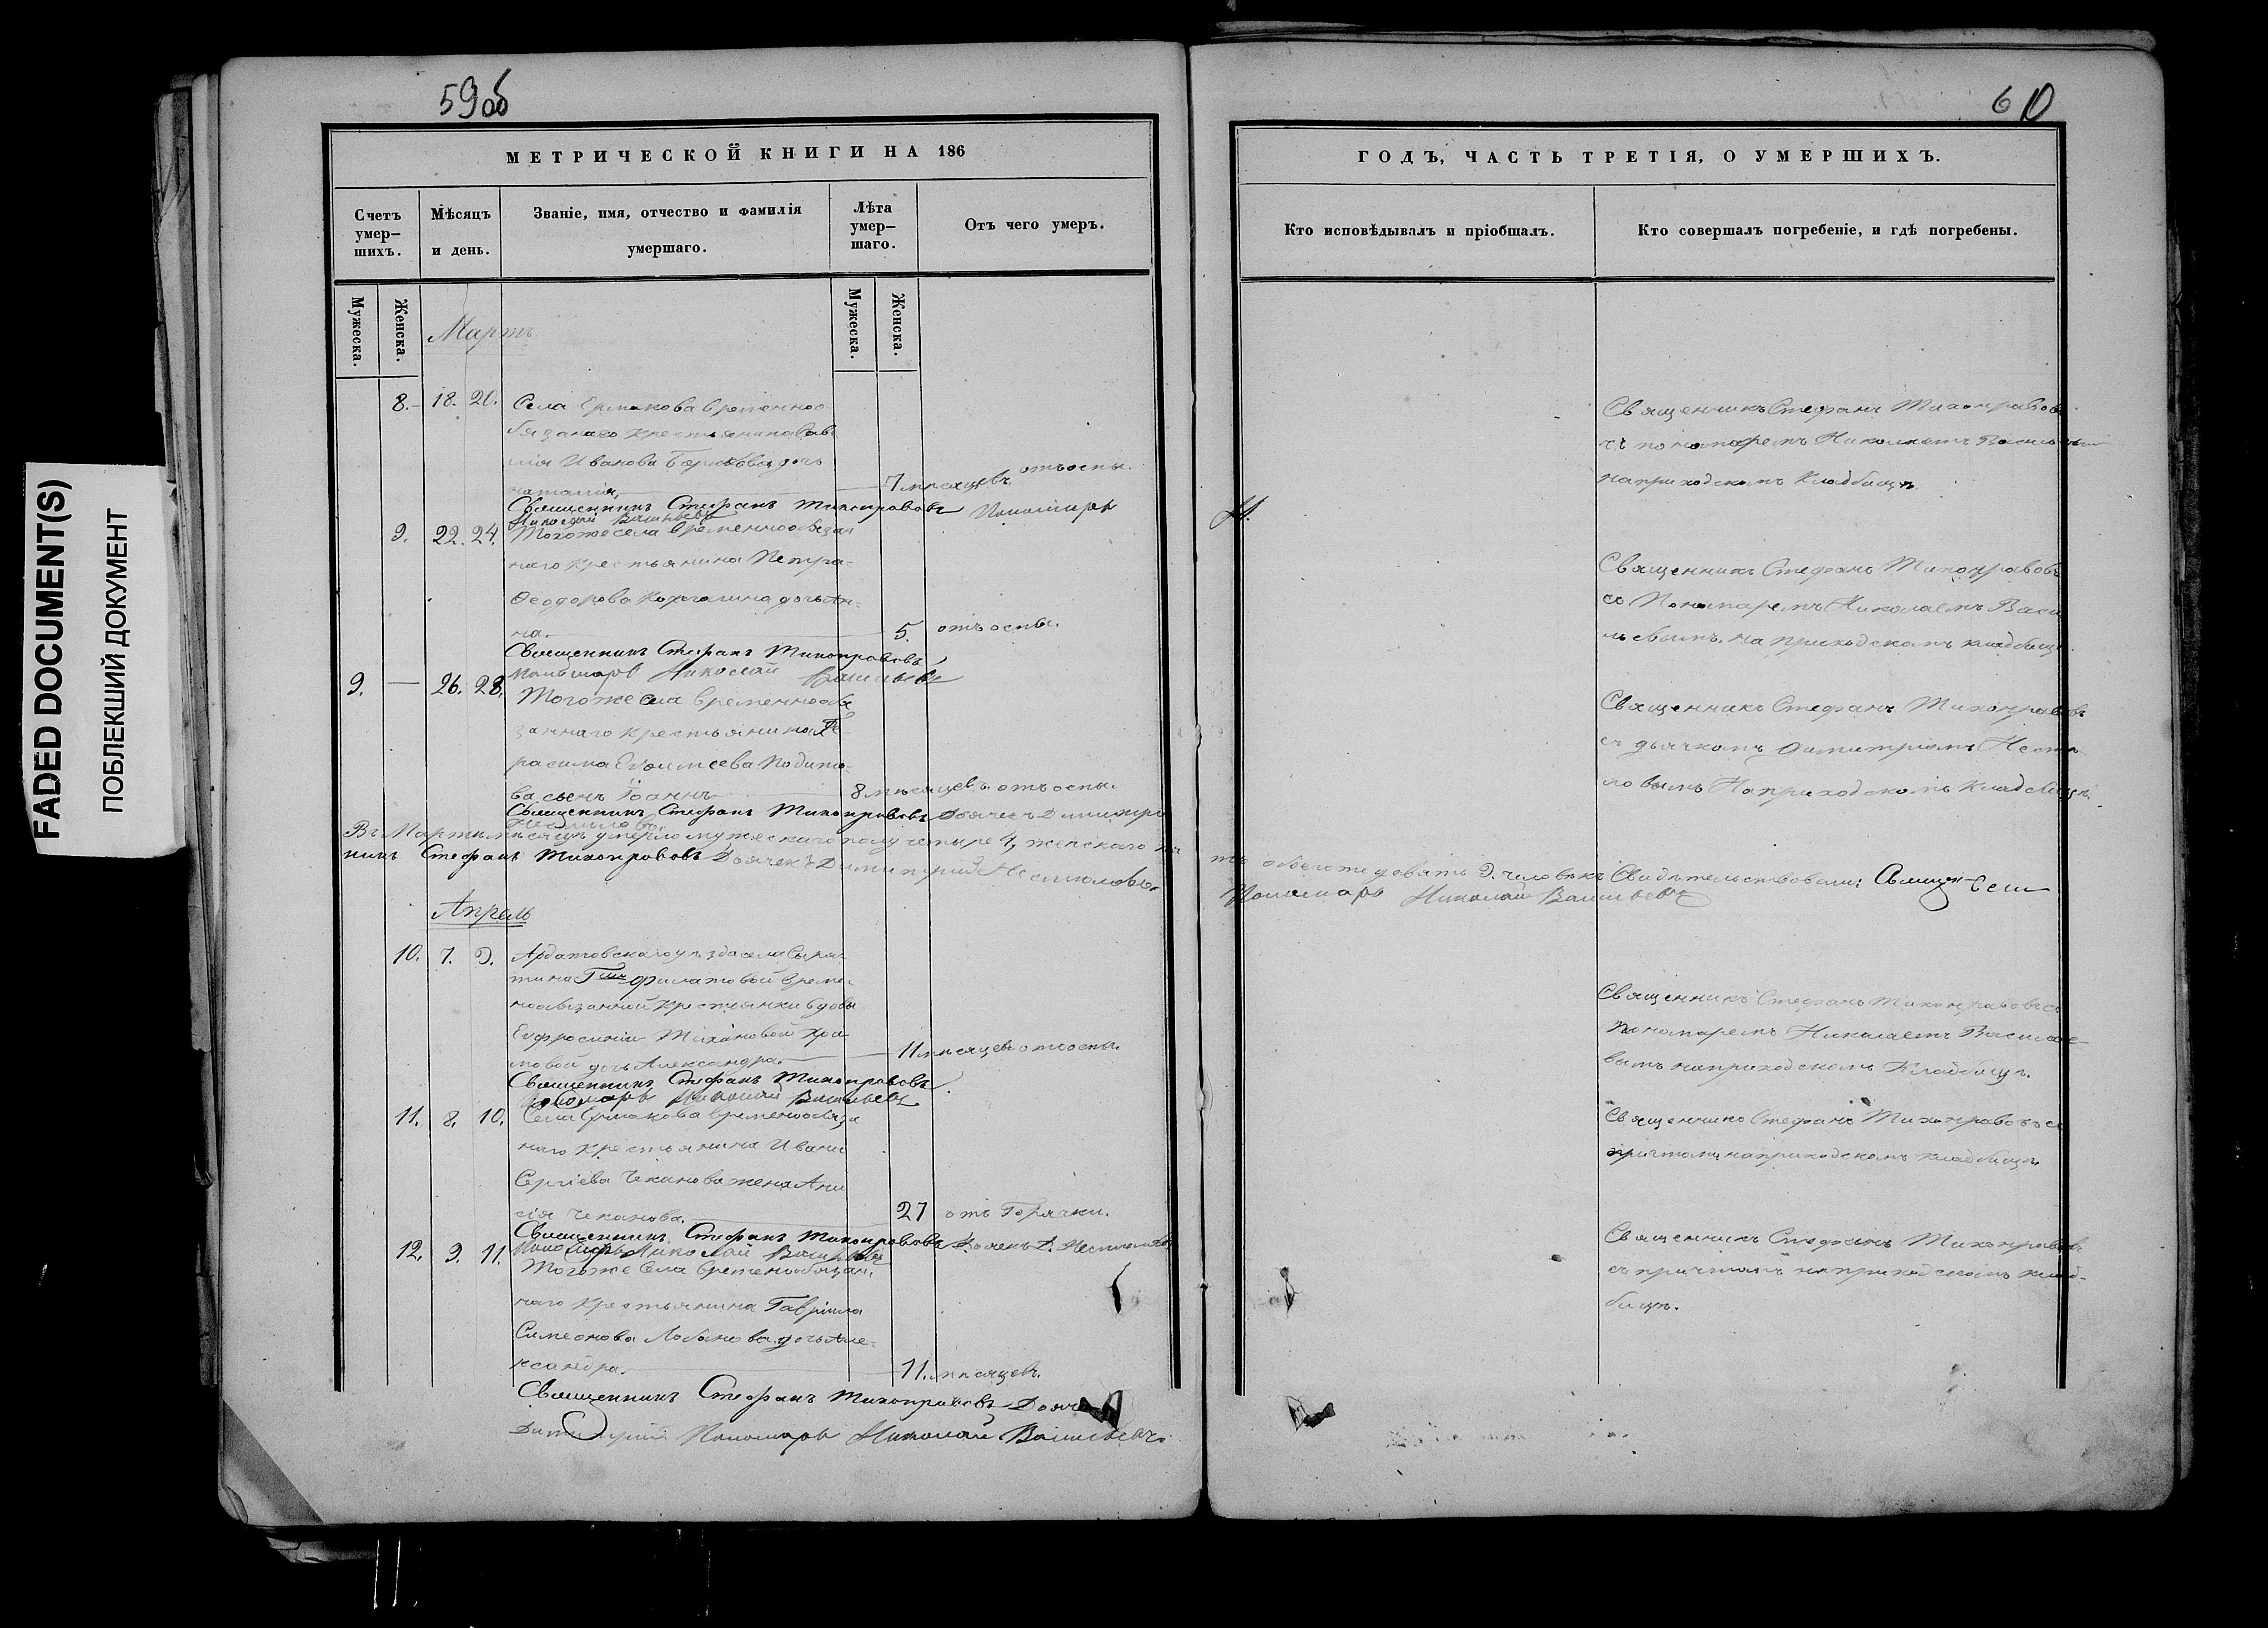 59об
60
FADED DOCUMENT(S)
ПОБЛЕКШИЙ ДОКУМЕНТ
МЕТРИЧЕСКОЙ КНИГИ НА 186
Счетъ умер—шихъ.
Мѣсяцъ и день.
Званіе, имя, отчество и фамилія умершаго.
Лѣта умер—шаго.
Отъ чего умеръ.
Мужеска.
Женска.
Мужеска.
Женска.
Мартъ
8. 18. 20. Села Ермакова временноо
бязанаго крестьянина Сав
Иванова дочь
наталія. 7 мѣсяцевъ отъ оспы.
Священникъ Стефанъ Тихонравовъ Пономарь
Николай Васильевъ
9. 22. 24. Того же села временнообязан
наго крестьянина Петра
Ѳеодорова дочь Ан-
на. 5. отъ оспы.
Священникъ Стефанъ Тихонравовъ
Пономарь Николай Васильевъ
9. — 26. 28. Того же села временнообя
заннаго крестьянина Ге-
расима
ва сынъ Іоаннъ 8 мѣсяцевъ. отъ оспы.
Священникъ Стефанъ Тихонравовъ Дьячекъ Димитрій
Въ Мартѣ мѣсяцѣ умерло мужескаго полу четыре 4, женскаго пя
никъ Стефанъ Тихонравовъ Дьячекъ Димитрій
Апрель
10. 7. 9. Ардатовскаго уѣзда села
Гжи Филатовой време-
нообязанной крестьянки вдовы
Евфросиніи
мовой дочь Александра. 11 мѣсяцевъ отъ оспы.
Священникъ Стефанъ Тихонравовъ
Пономарь Николай Васильевъ
11. 8. 10. Села Ермакова временообяза
наго крестьянина Ивана
Сергіева Чеканова жена Ани
сія Чеканова. 27 отъ Горячки.
Священникъ Стефанъ Тихонравовъ Дьячекъ Д.
Пономарь Николай Васильевъ
12. 9. 11. Того же Села временообязан.
наго крестьянина Гавріила
Симеонова Лобанова дочь Але-
ксандра. 11. мѣсяцевъ.
Священникъ Стефанъ Тихонравовъ
Димитрій Пономарь Николай Васильевъ.
ГОДЪ, ЧАСТЬ ТРЕТІЯ, О УМЕРШИХЪ.
Кто исповѣдывалъ и пріобщалъ.
Кто совершалъ погребеніе, и гдѣ погребены.
Священникъ Стефанъ Тихонравовъ
съ пономаремъ Николаемъ
на приходскомъ Кладбищѣ
Священникъ Стефанъ Тихонравовъ
со Пономаремъ Николаемъ Васи
льевымъ. на приходскомъ кладбищѣ.
Священникъ Стефанъ Тихонравовъ
съ дьячкомъ Димитріемъ
ловымъ На приходскомъ Кладбищѣ.
ть обоего же девять 9. человѣкъ Свидѣтельствовали: Священ-
Пономарь Николай Васильевъ
Священникъ Стефанъ Тихонравовъ съ
Пономаремъ Николаемъ Василье-
вымъ на приходскомъ Кладбищѣ.
Священникъ Стефанъ Тихонравовъ съ
причтомъ на приходскомъ кладбищѣ.
Священникъ Стефанъ Тихонравовъ
съ причтомъ на приходскомъ клад-
бищѣ.